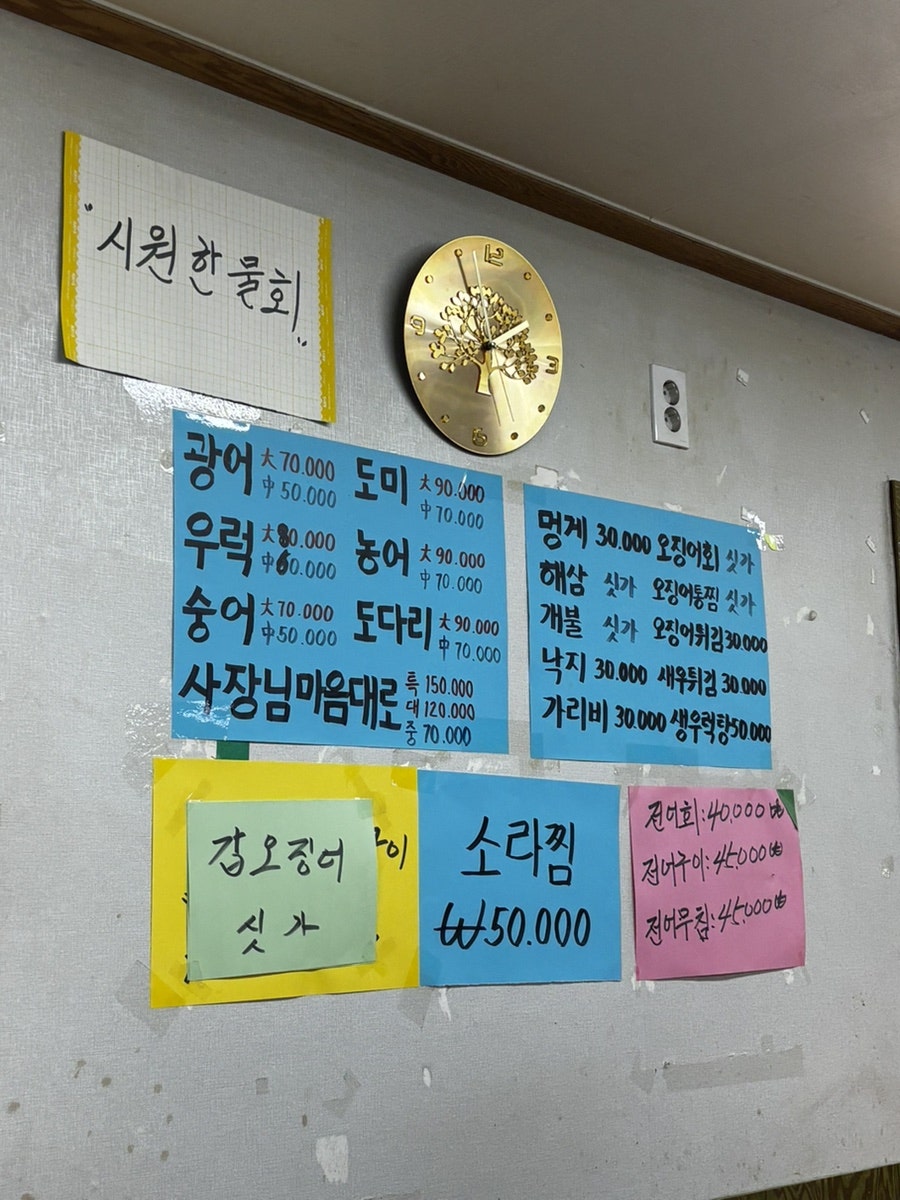 "시원한물회"
12
3
6
9
광어 大 70.000
中 50.000
도미 大 90.000
中 70.000
우럭 大 80.000
中 60.000
농어 大 90.000
中 70.000
숭어 大 70.000
中 50.000
도다리 大 90.000
中 70.000
사장님마음대로 특 150.000
대 120.000
중 70.000
멍게 30.000 오징어회 싯가
해삼 싯가 오징어통찜 싯가
개불 싯가 오징어튀김 30.000
낙지 30.000 새우튀김 30.000
가리비 30.000 생우럭탕 50.000
갑오징어
싯가
이
소라찜
₩50.000
전어회:40,000₩
전어구이:45,000₩
전어무침:45,000₩